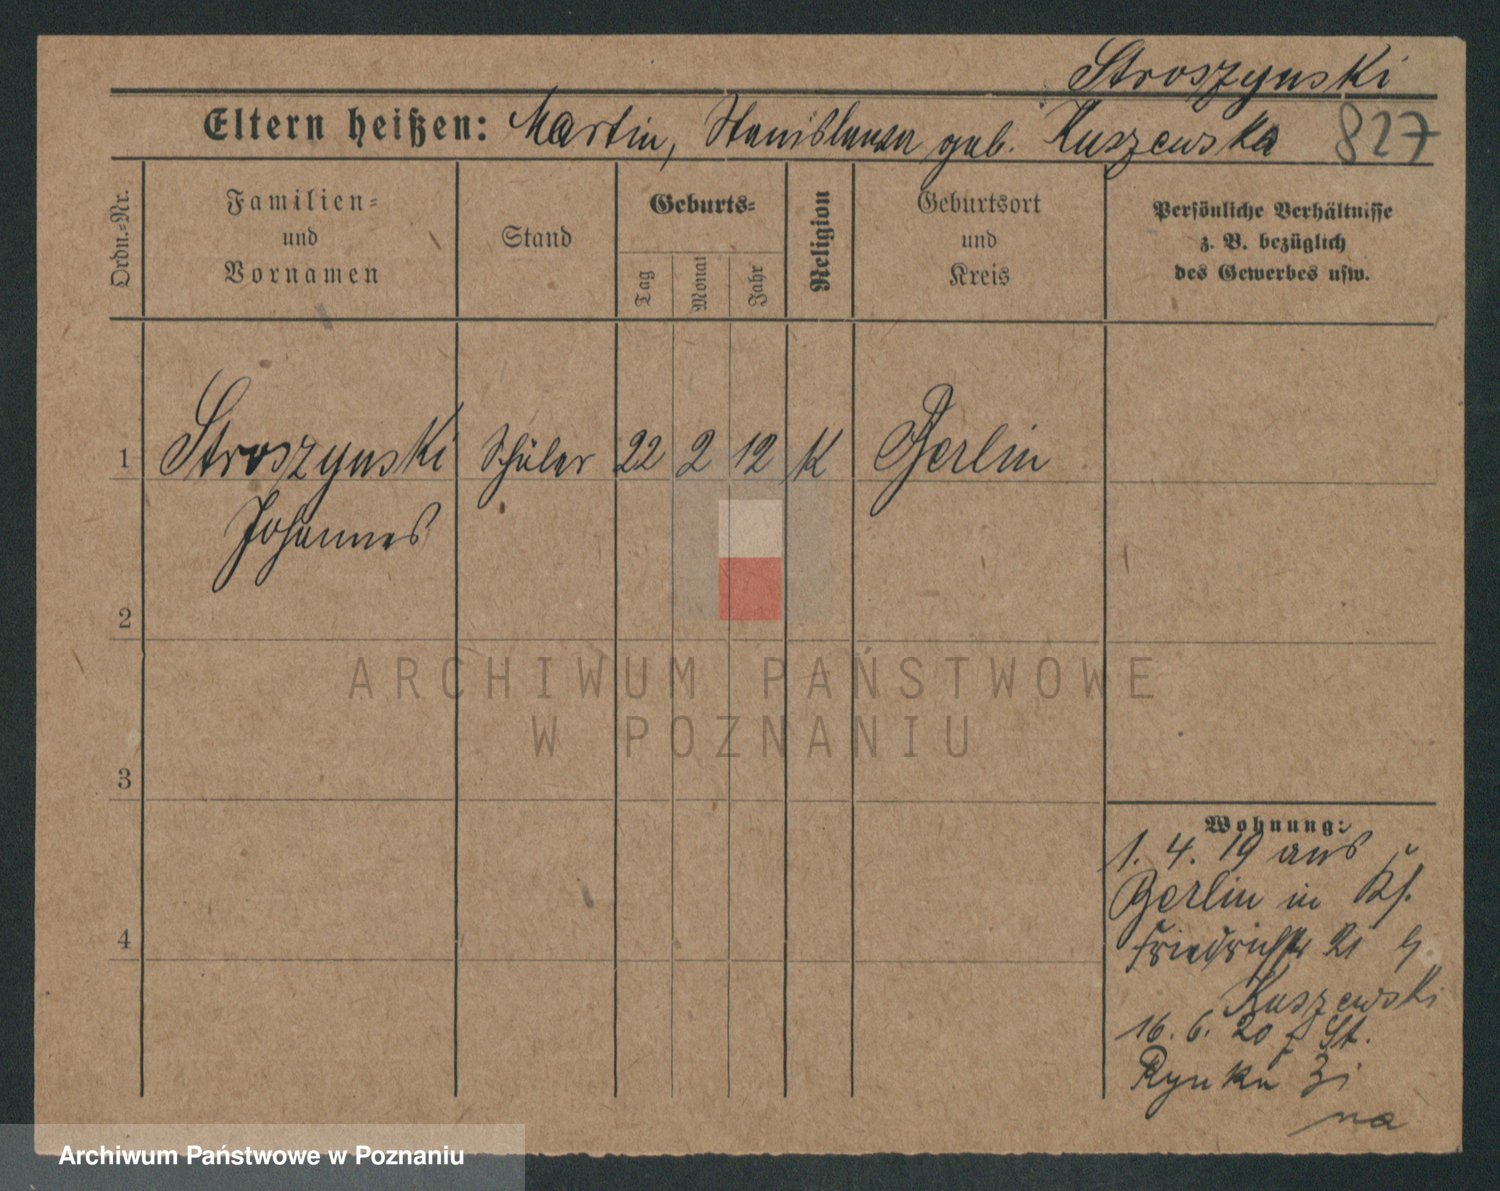 Stroszynski
Eltern heißen: Martin, Stanislawa geb. Kuszewska 827
Ordn.-Nr.
Familien-
und
Vornamen
Stand
Geburts-
Tag
Monat
Jahr
Religion
Geburtsort
und
Kreis
Persönliche Verhältnisse
z. B. bezüglich
des Gewerbes usw.
1 Stroszynski Schüler 22 2 12 K Berlin
Johannes
2
3
4
ARCHIWUM PAŃSTWOWE
W POZNANIU
Wohnung:
1. 4. 19 aus
Berlin in
Friedrichstr 21
Kuszewski
16. 6. 20 St.
Rynku
Archiwum Państwowe w Poznaniu